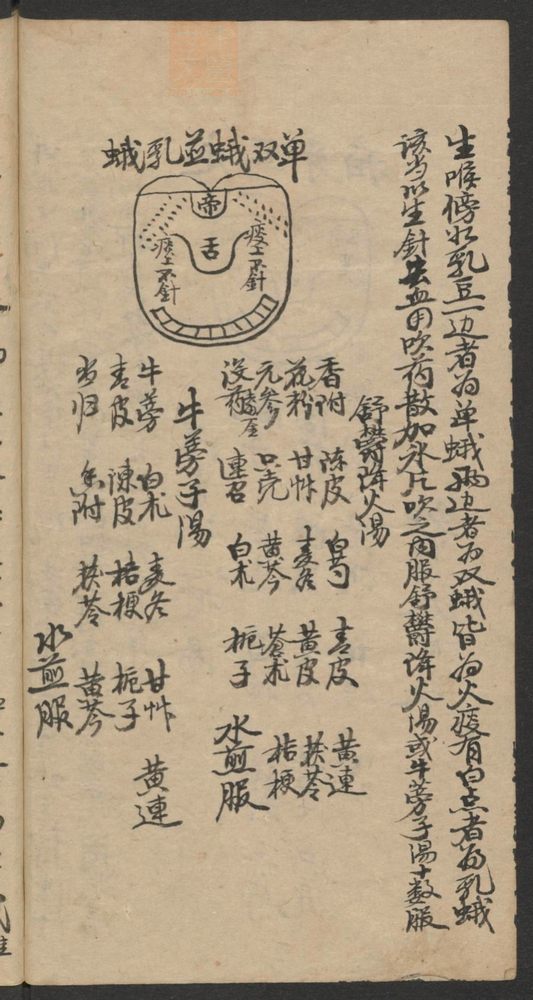 生喉傍如乳豆一边者为单蛾两边者为双蛾皆为火痰有白点者为乳蛾
该当以生針去血用吹药散加冰片吹之内服舒欝降火湯或牛蒡子湯十数服
单双蛾並乳蛾
帝
舌
痰上不針
痰上不針
舒欝降火湯
香附 陈皮 白芍 青皮 黄連
花粉 甘艸 麦冬 黄皮 茯苓
元参 只壳 黄芩 苍术 桔梗
没药 連召 白术 栀子 水煎服
牛蒡子湯
牛蒡 白术 麦冬 甘艸 黄連
青皮 陳皮 桔梗 栀子
当归 香附 茯苓 黄芩
水煎服